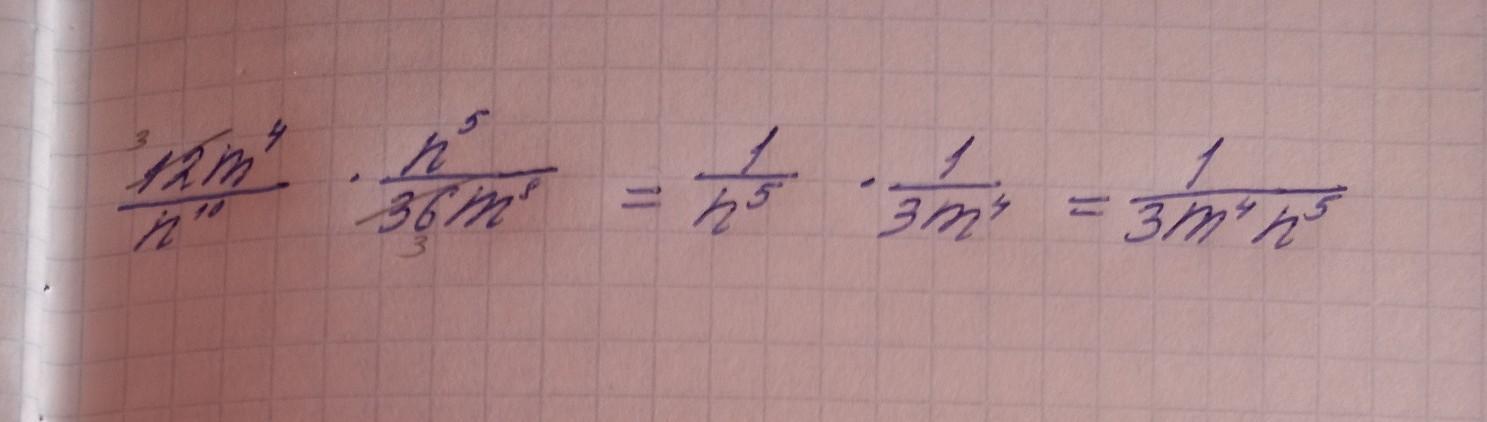 ³ 12m⁴/n¹⁰ · n⁵/36m⁸ 3 = 1/n⁵ · 1/3m⁴ = 1/3m⁴n⁵